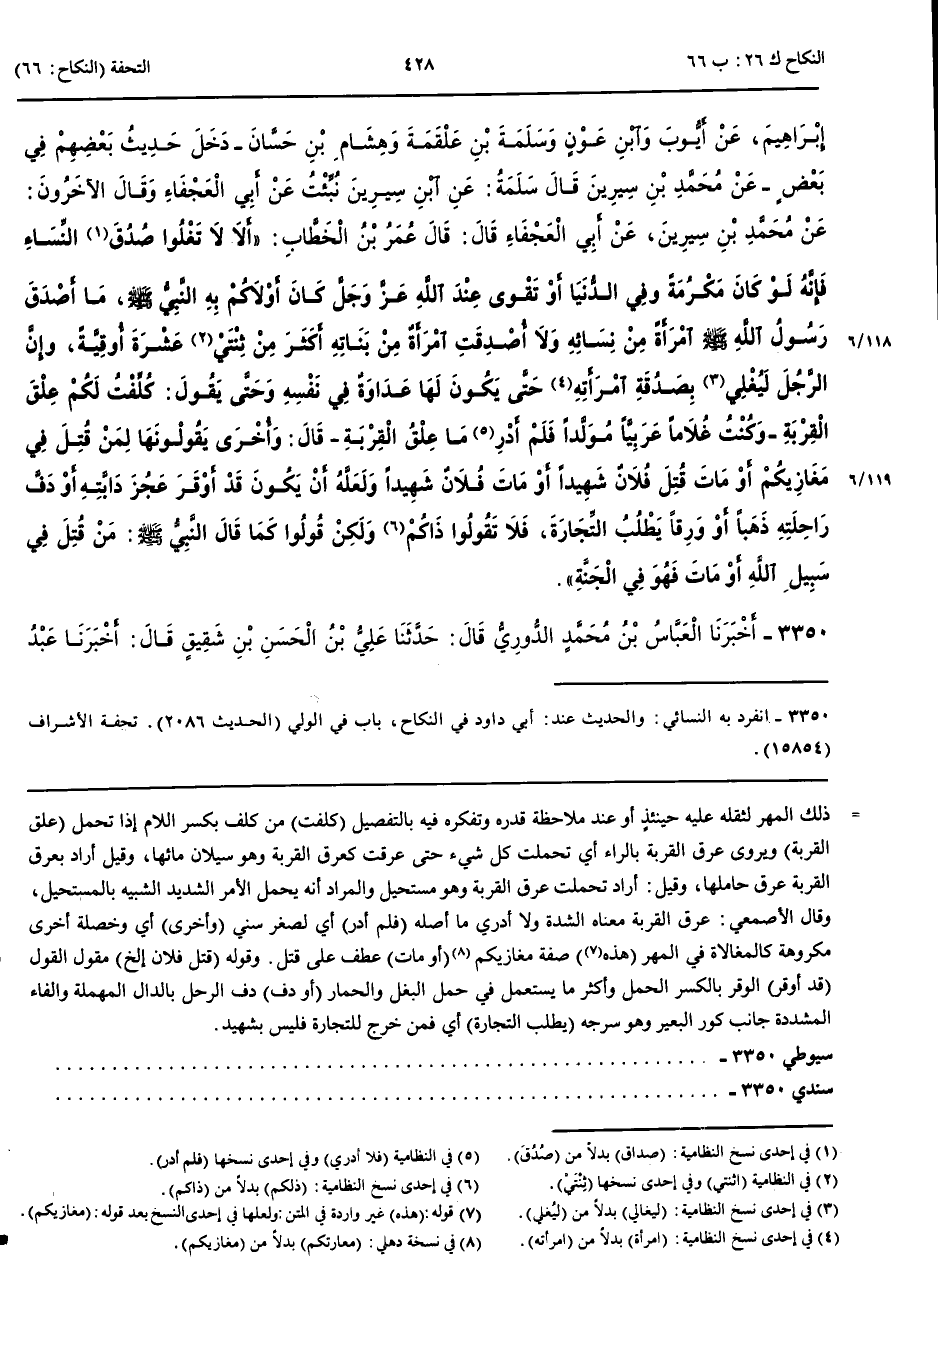 النكاح ك ٢٦: ب ٦٦
٤٢٨
التحفة (النكاح: ٦٦)
إِبْرَاهِيمَ، عَنْ أَيُّوبَ وَٱبْنِ عَوْنٍ وَسَلَمَةَ بْنِ عَلْقَمَةَ وَهِشَامِ بْنِ حَسَّانَ - دَخَلَ حَدِيثُ بَعْضِهِمْ فِي
بَعْضٍ - عَنْ مُحَمَّدِ بْنِ سِيرِينَ قَالَ سَلَمَةُ: عَنِ ٱبْنِ سِيرِينَ نُبِّئْتُ عَنْ أَبِي الْعَجْفَاءِ وَقَالَ الآخَرُونَ:
عَنْ مُحَمَّدِ بْنِ سِيرِينَ، عَنْ أَبِي الْعَجْفَاءِ قَالَ: قَالَ عُمَرُ بْنُ الْخَطَّابِ: «أَلَا لَا تَغْلُوا صُدُقَ(١) النِّسَاءِ
فَإِنَّهُ لَوْ كَانَ مَكْرُمَةً وفِي الدُّنْيَا أَوْ تَقْوى عِنْدَ اللَّهِ عَزَّ وَجَلَّ كَانَ أَوْلَاكُمْ بِهِ النَّبِيُّ ﷺ، مَا أَصْدَقَ
رَسُولُ ٱللَّهِ ﷺ ٱمْرَأَةً مِنْ نِسَائِهِ وَلَا أُصْدِقَتِ ٱمْرَأَةٌ مِنْ بَنَاتِهِ أَكْثَرَ مِنْ ثِنْتَيْ(٢) عَشْرَةَ أُوقِيَّةً، وإِنَّ
٦/١١٨
الرَّجُلَ لَيُغْلِي(٣) بِصَدُقَةِ ٱمْرَأَتِهِ(٤) حَتَّى يَكُونَ لَهَا عَدَاوَةٌ فِي نَفْسِهِ وَحَتَّى يَقُولَ: كُلِّفْتُ لَكُمْ عِلْقَ
الْقِرْبَةِ - وَكُنْتُ غُلَاماً عَرَبِيّاً مُوَلَّداً فَلَمْ أَدْرِ(٥) مَا عِلْقُ الْقِرْبَةِ - قَالَ: وَأُخْرَى يَقُولُونَهَا لِمَنْ قُتِلَ فِي
مَغَازِيكُمْ أَوْ مَاتَ قُتِلَ فُلَانٌ شَهِيداً أَوْ مَاتَ فُلَانٌ شَهِيداً وَلَعَلَّهُ أَنْ يَكُونَ قَدْ أَوْقَرَ عَجُزَ دَابَّتِهِ أَوْ دَفَّ
٦/١١٩
رَاحِلَتِهِ ذَهَباً أَوْ وَرِقاً يَطْلُبُ التِّجَارَةَ، فَلَا تَقُولُوا ذَاكُمْ(٦) وَلَكِنْ قُولُوا كَمَا قَالَ النَّبِيُّ ﷺ: مَنْ قُتِلَ فِي
سَبِيلِ ٱللَّهِ أَوْ مَاتَ فَهُوَ فِي الْجَنَّةِ».
٣٣٥٠ - أَخْبَرَنَا الْعَبَّاسُ بْنُ مُحَمَّدٍ الدُّورِيُّ قَالَ: حَدَّثَنَا عَلِيُّ بْنُ الْحَسَنِ بْنِ شَقِيقٍ قَالَ: أَخْبَرَنَا عَبْدُ
٣٣٥٠ - انفرد به النسائي: والحديث عند: أبي داود في النكاح، باب في الولي (الحديث ٢٠٨٦). تحفة الأشراف
(١٥٨٥٤).
= ذلك المهر لثقله عليه حينئذٍ أو عند ملاحظة قدره وتفكره فيه بالتفصيل (كلفت) من كلف بكسر اللام إذا تحمل (علق
القربة) ويروى عرق القربة بالراء أي تحملت كل شيء حتى عرقت كعرق القربة وهو سيلان مائها، وقيل أراد بعرق
القربة عرق حاملها، وقيل: أراد تحملت عرق القربة وهو مستحيل والمراد أنه يحمل الأمر الشديد الشبيه بالمستحيل،
وقال الأصمعي: عرق القربة معناه الشدة ولا أدري ما أصله (فلم أدر) أي لصغر سني (وأخرى) أي وخصلة أخرى
مكروهة كالمغالاة في المهر (هذه(٧)) صفة مغازيكم (٨)(أو مات) عطف على قتل. وقوله (قتل فلان إلخ) مقول القول
(قد أوقر) الوقر بالكسر الحمل وأكثر ما يستعمل في حمل البغل والحمار (أو دف) دف الرحل بالدال المهملة والفاء
المشددة جانب كور البعير وهو سرجه (يطلب التجارة) أي فمن خرج للتجارة فليس بشهيد.
سيوطي ٣٣٥٠ - . . . . . . . . . . . . . . . . . . . .
سندي ٣٣٥٠ - . . . . . . . . . . . . . . . . . . . .
(١) في إحدى نسخ النظامية: (صداق) بدلاً من (صُدُقَ).
(٢) في النظامية (اثنتي) وفي إحدى نسخها (ثِنْتَيْ).
(٣) في إحدى نسخ النظامية: (ليغالي) بدلاً من (ليُغلي).
(٤) في إحدى نسخ النظامية: (امرأة) بدلاً من (امرأته).
(٥) في النظامية (فلا أدري) وفي إحدى نسخها (فلم أدر).
(٦) في إحدى نسخ النظامية: (ذلكم) بدلاً من (ذاكم).
(٧) قوله: (هذه) غير واردة في المتن: ولعلها في إحدى النسخ بعد قوله: (مغازيكم).
(٨) في نسخة دهلي: (معارتكم) بدلاً من (مغازيكم).